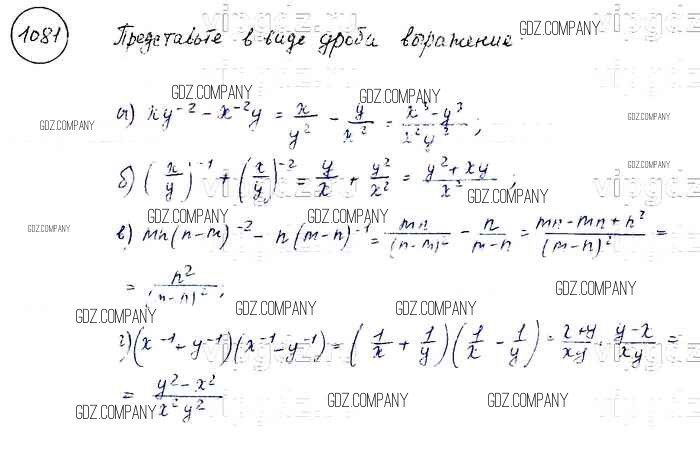 1081 Представьте в виде дроби выражение
GDZ.COMPANY
GDZ.COMPANY
GDZ.COMPANY GDZ.COMPANY GDZ.COMPANY
а) xy⁻² - x⁻²y = x/y² - y/x² = (x³-y³)/(x²y²);
GDZ.COMPANY GDZ.COMPANY GDZ.COMPANY
б) (x/y)⁻¹ + (x/y)⁻² = y/x + y²/x² = (y²+xy)/x²;
GDZ.COMPANY
GDZ.COMPANY GDZ.COMPANY GDZ.COMPANY GDZ.COMPANY
в) mn(n-m)⁻² - n(m-n)⁻¹ = mn/(n-m)² - n/(m-n) = (mn-mn+n²)/(m-n)² =
= n²/(m-n)²;
GDZ.COMPANY GDZ.COMPANY GDZ.COMPANY
г) (x⁻¹+y⁻¹)(x⁻¹-y⁻¹) = (1/x + 1/y)(1/x - 1/y) = (x+y)/xy · (y-x)/xy =
= (y²-x²)/(x²y²)
GDZ.COMPANY GDZ.COMPANY GDZ.COMPANY